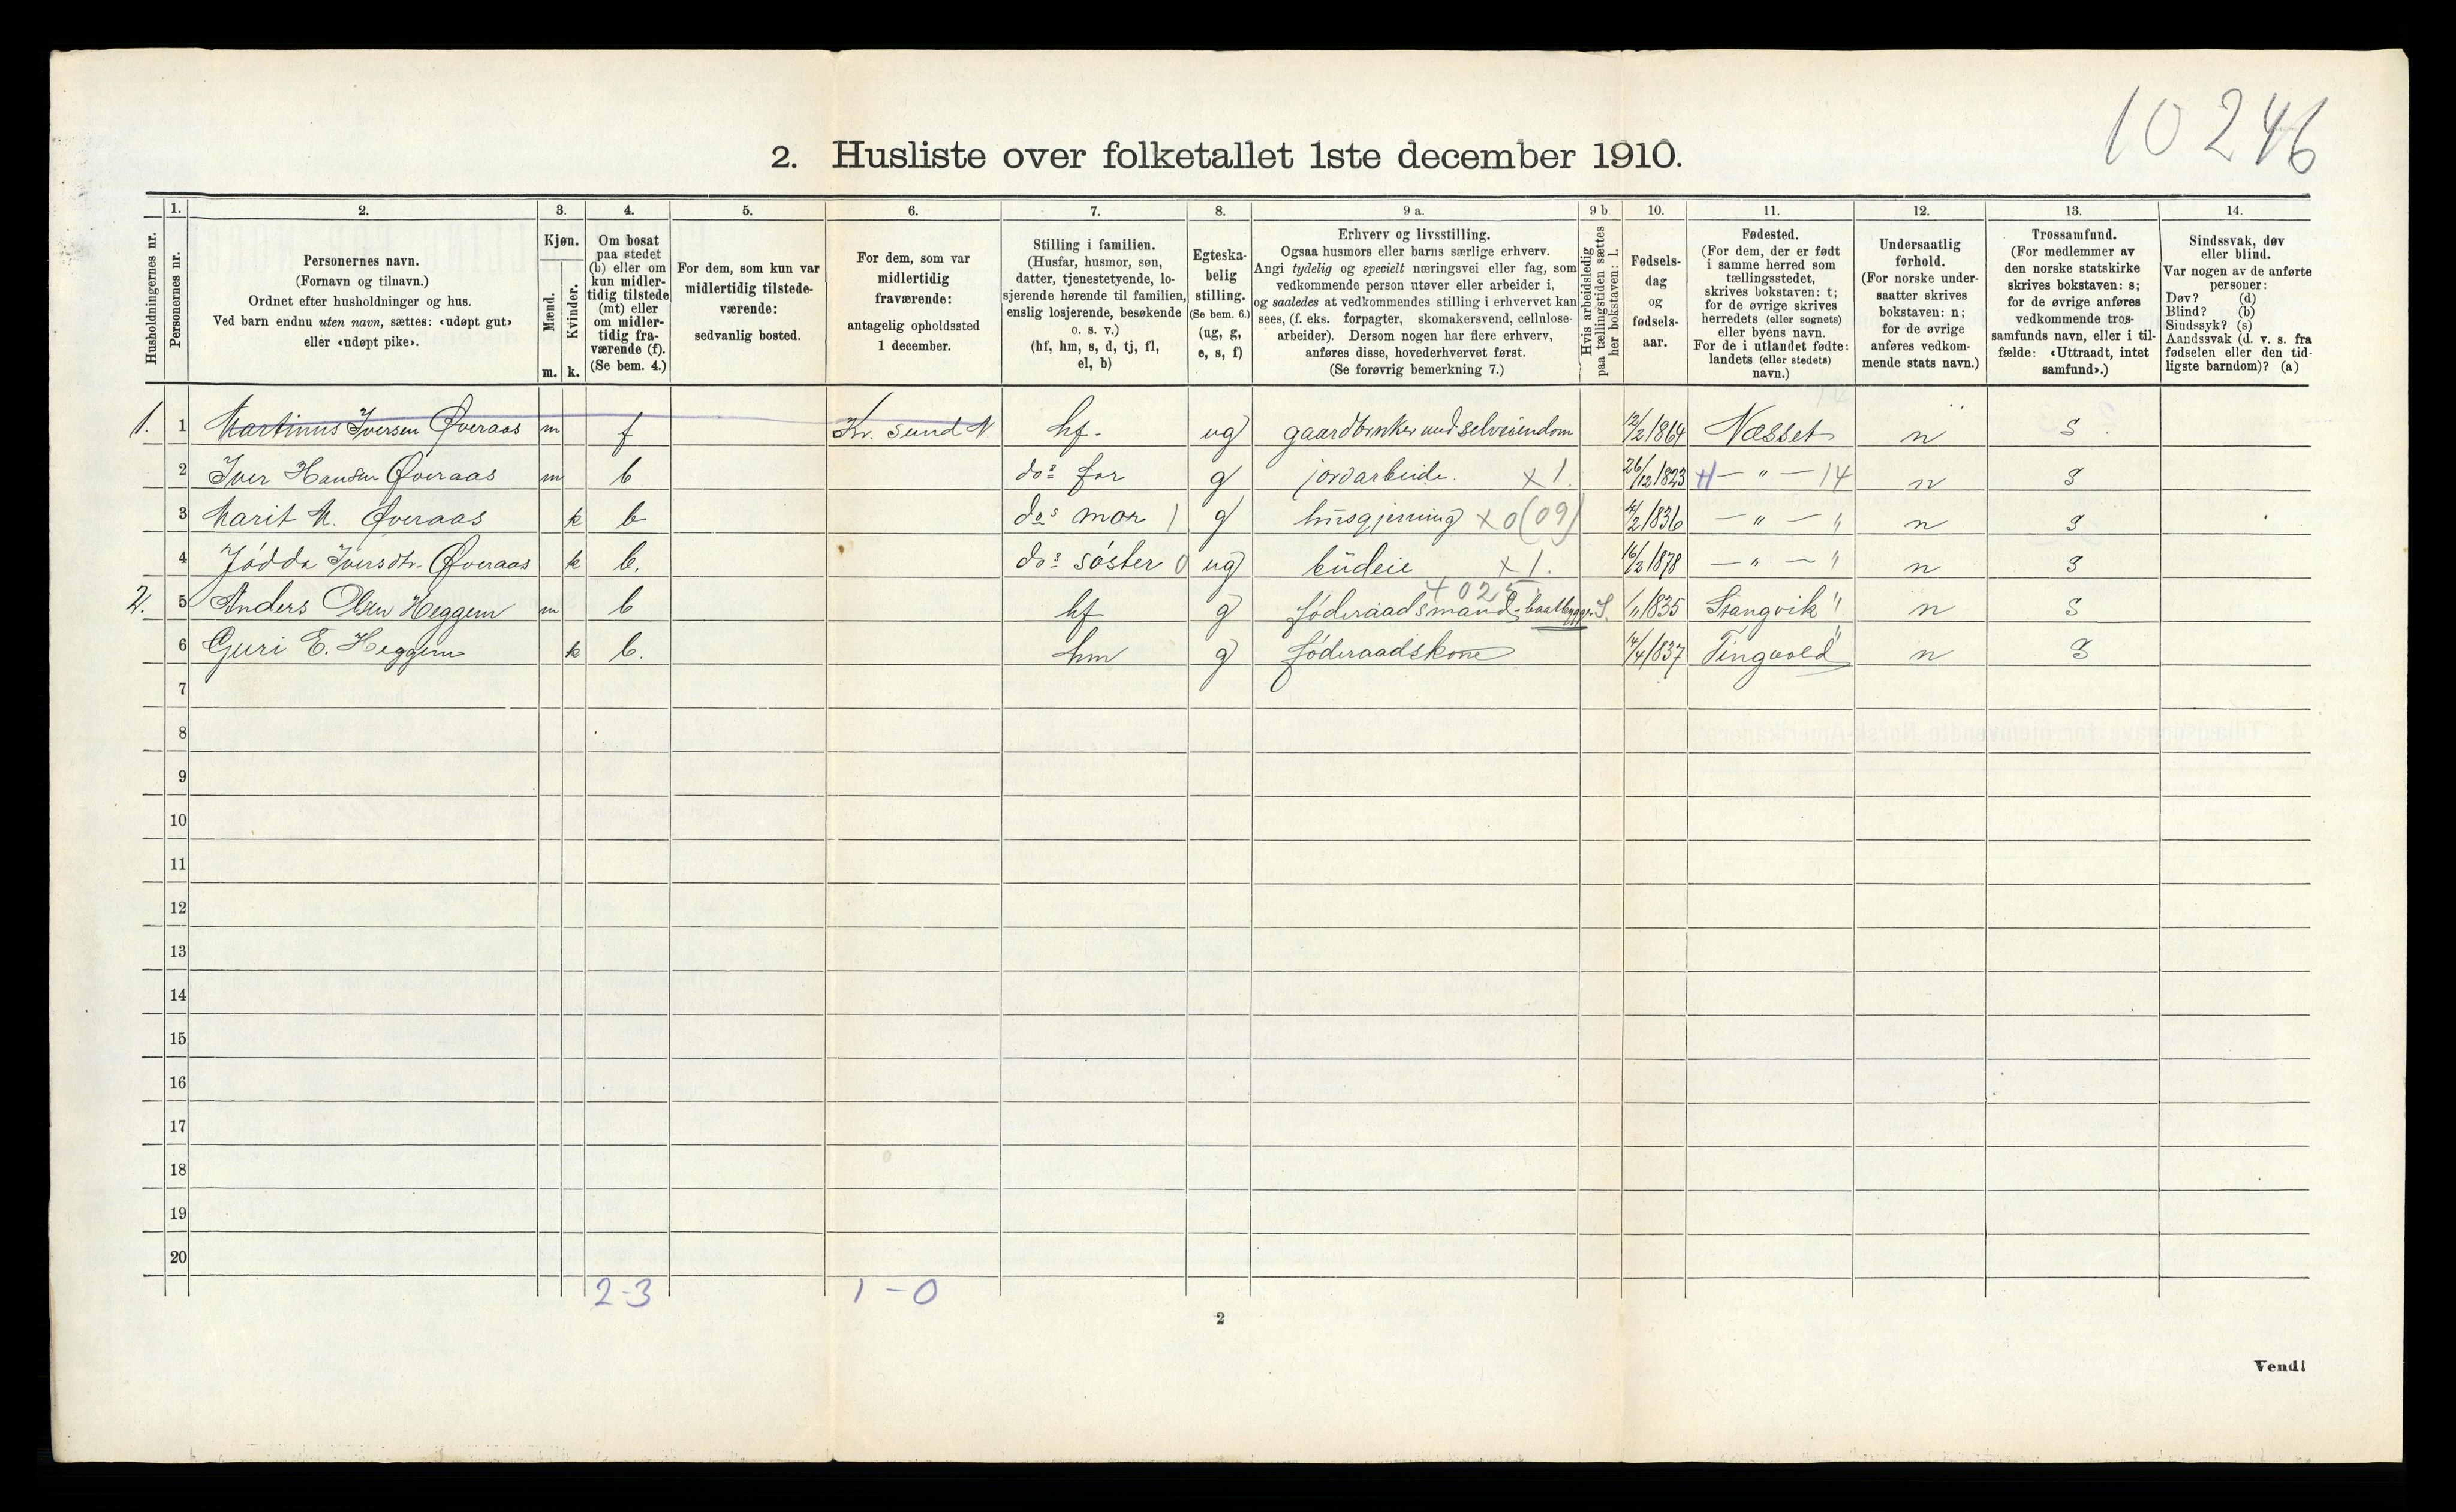 10 246
2. Husliste over folketallet 1ste december 1910.
Husholdningernes nr.
1. Personernes nr.
2. Personernes navn.
(Fornavn og tilnavn.)
Ordnet efter husholdninger og hus.
Ved barn endnu uten navn, sættes: «udøpt gut»
eller «udøpt pike».
3. Kjøn.
Mænd. m.
Kvinder. k.
4. Om bosat
paa stedet
(b) eller om
kun midler-
tidig tilstede
(mt) eller
om midler-
tidig fra-
værende (f).
(Se bem. 4.)
5. For dem, som kun var
midlertidig tilstede-
værende:
sedvanlig bosted.
6. For dem, som var
midlertidig
fraværende:
antagelig opholdssted
1 december.
7. Stilling i familien.
(Husfar, husmor, søn,
datter, tjenestetyende, lo-
sjerende hørende til familien,
enslig losjerende, besøkende
o. s. v.)
(hf, hm, s, d, tj, fl,
el, b)
8. Egteska-
belig
stilling.
(Se bem. 6.)
(ug, g,
e, s, f)
9 a. Erhverv og livsstilling.
Ogsaa husmors eller barns særlige erhverv.
Angi tydelig og specielt næringsvei eller fag, som
vedkommende person utøver eller arbeider i,
og saaledes at vedkommendes stilling i erhvervet kan
sees, (f. eks. forpagter, skomakersvend, cellulose-
arbeider). Dersom nogen har flere erhverv,
anføres disse, hovederhvervet først.
(Se forøvrig bemerkning 7.)
9 b Hvis arbeidsledig
paa tællingstiden sættes
her bokstaven: l.
10. Fødsels-
dag
og
fødsels-
aar.
11. Fødested.
(For dem, der er født
i samme herred som
tællingsstedet,
skrives bokstaven: t;
for de øvrige skrives
herredets (eller sognets)
eller byens navn.
For de i utlandet fødte:
landets (eller stedets)
navn.)
12. Undersaatlig
forhold.
(For norske under-
saatter skrives
bokstaven: n;
for de øvrige
anføres vedkom-
mende stats navn.)
13. Trossamfund.
(For medlemmer av
den norske statskirke
skrives bokstaven: s;
for de øvrige anføres
vedkommende tros-
samfunds navn, eller i til-
fælde: «Uttraadt, intet
samfund».)
14. Sindssvak, døv
eller blind.
Var nogen av de anførte
personer:
Døv? (d)
Blind? (b)
Sindssyk? (s)
Aandssvak (d. v. s. fra
fødselen eller den tid-
ligste barndom)? (a)
1. 1 Martinus Iversen Øveraas m f Kr. sund N. hf. ug gaardbruker selveiendom 12/2 1864 Næsset n s
2 Iver Hansen Øveraas m b dos far g jordarbeide. x 1. 26/12 1823 — " — 14 n s
3 Marit M. Øveraas k b dos mor 1 g husgjerning x 0 (09) 4/2 1836 — " — " n s
4 Jødda Iversdtr. Øveraas k b. dos søster 0 ug budeie x 1. 16/2 1878 — " — " n s
2. 5 Anders Olsen Heggem m b hf g føderaadsmand - baatbygger S. 1835 Stangvik " n s
6 Guri E. Heggem k b. hm g føderaadskone 14/4 1837 Tingvold n s
7
8
9
10
11
12
13
14
15
16
17
18
19
20
2-3 1-0
2
Vend!